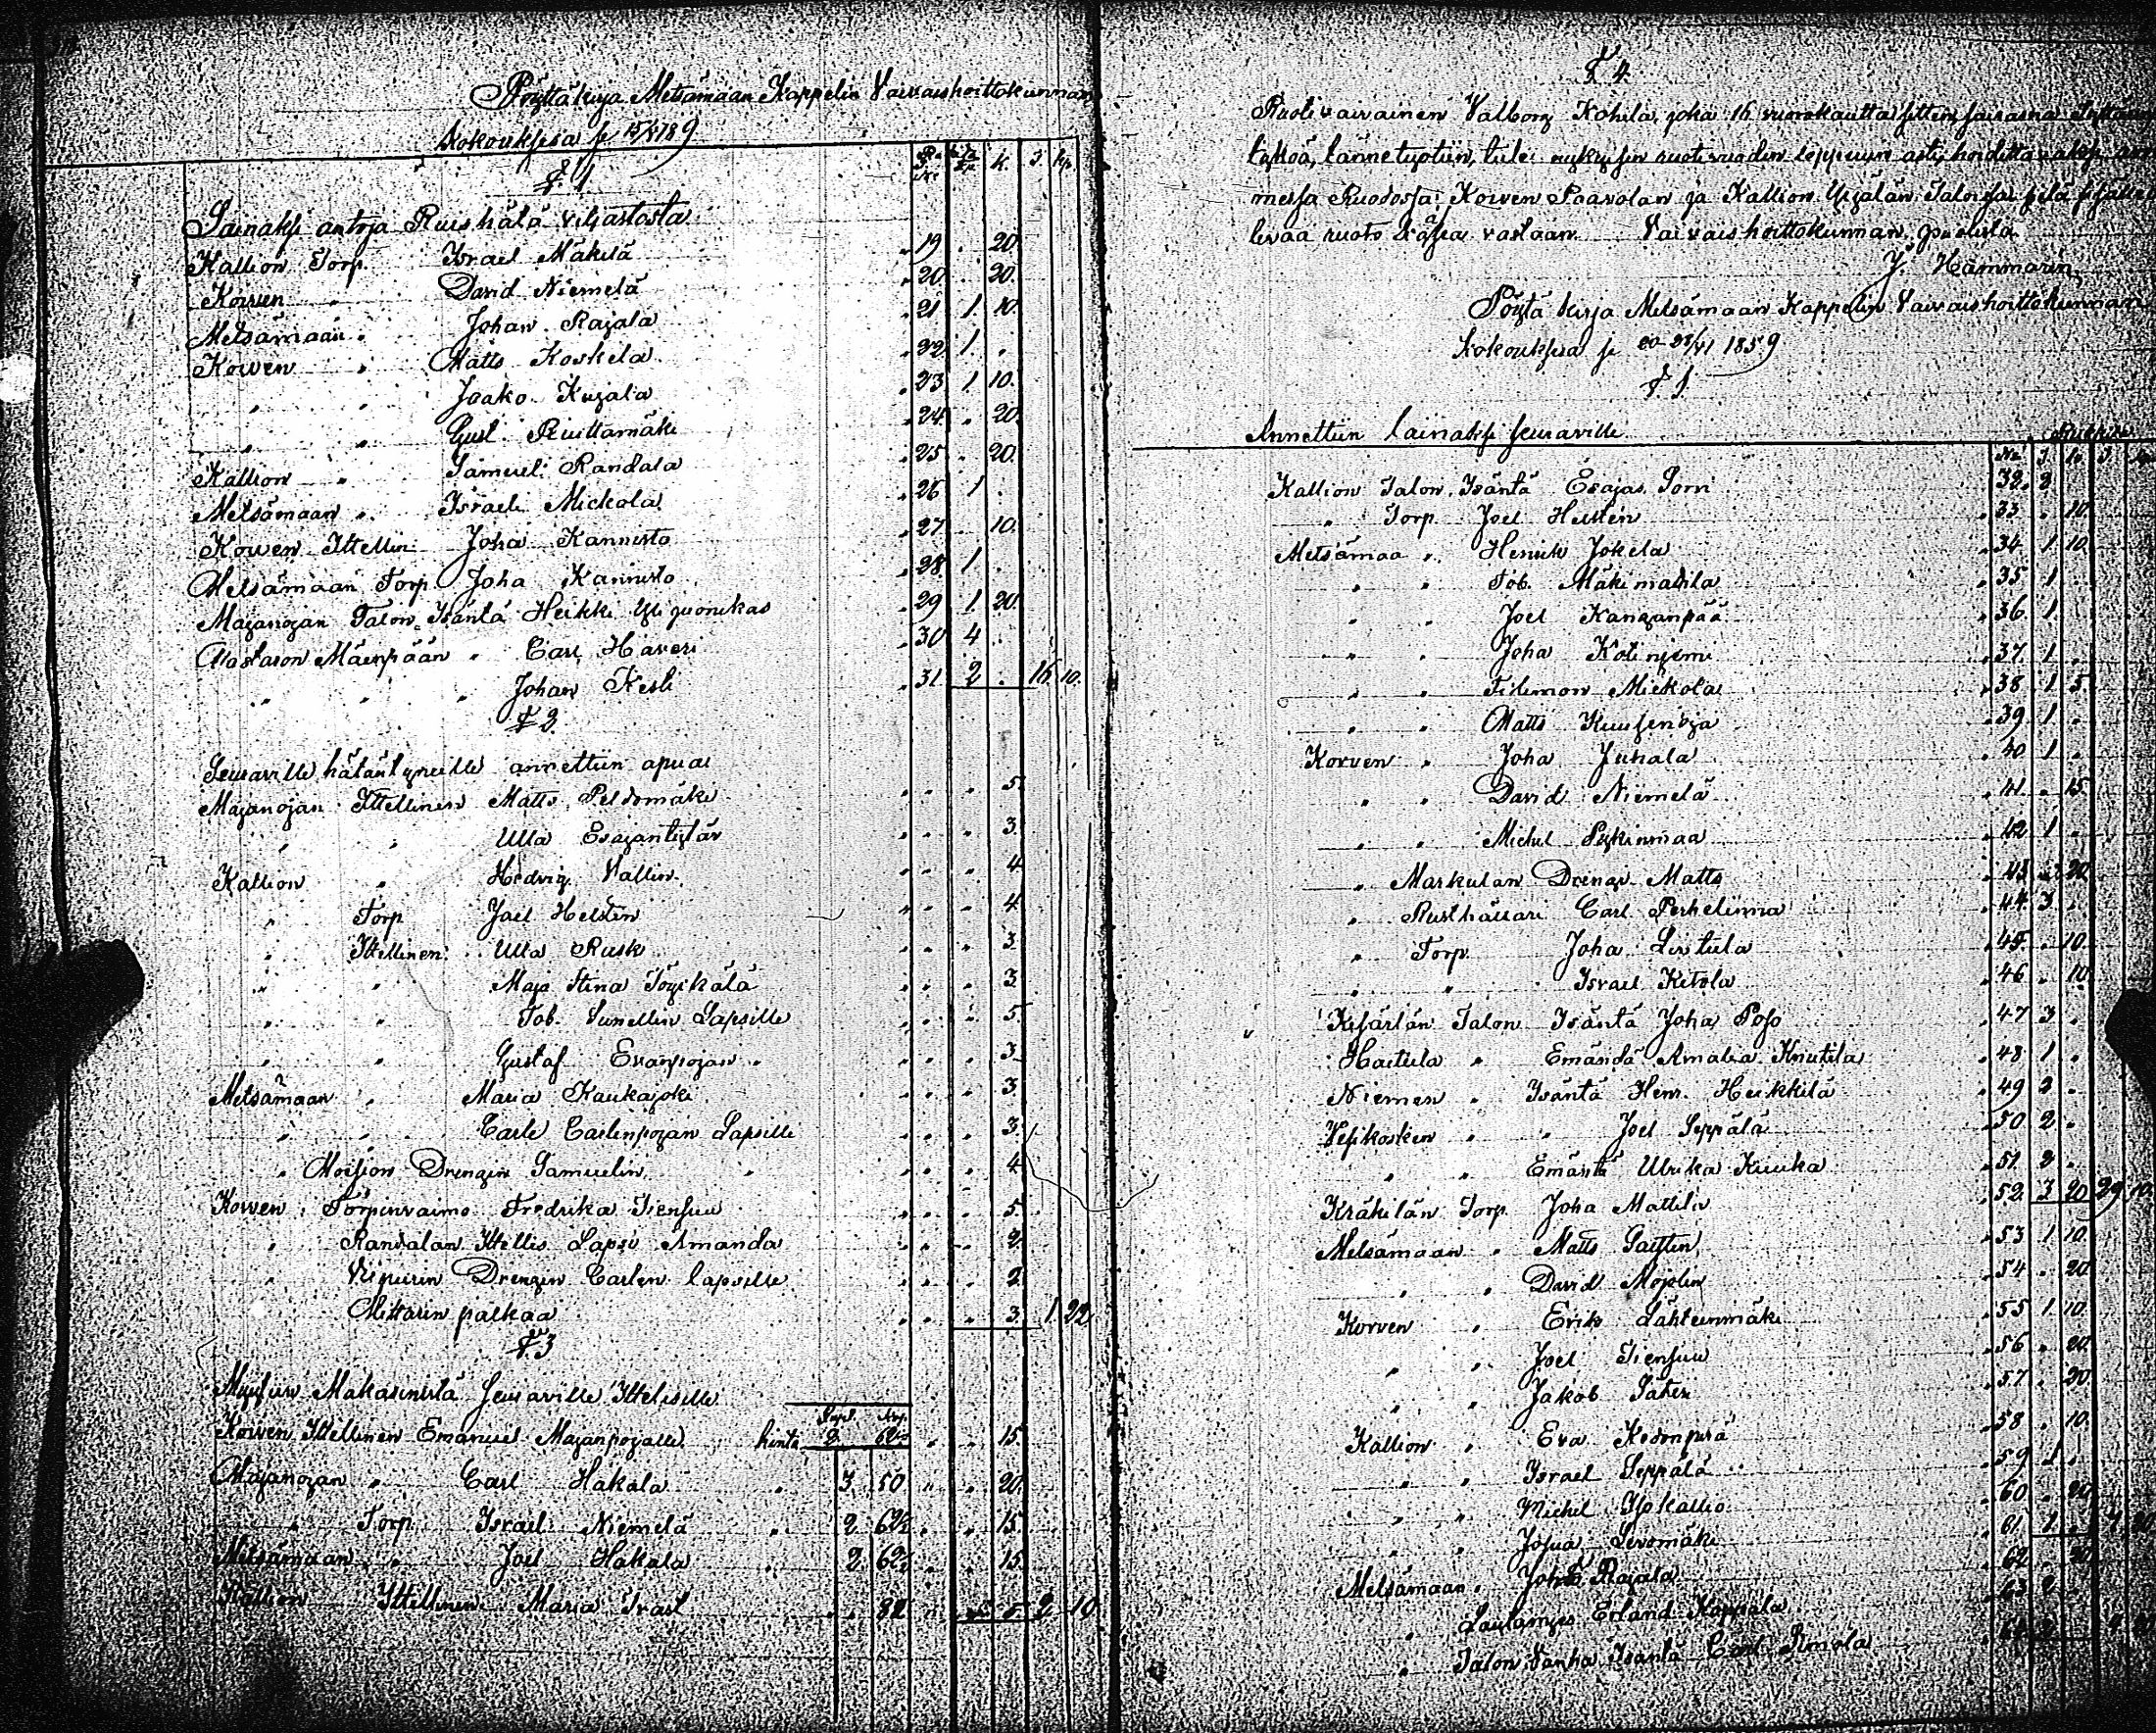 Pöyttäkirja Metsämaan Kappelin Vaivaishoittokunnan
kokouksesa se 15/
§ 1
Lainaksi antoja Ruis hätä viljastosta
Kallion Torp. Israel Mäkilä 19 . 20
Korven " David Niemelä 20 . 20.
Metsämaan " Johan Rajala 21 1 10.
Korven " Matts Koskela 1 .
" " Jaako Kujala 23 1 10.
" " Gust. Ruittamäki 24 . 20
Kallion " Samuel Randala 25 . 20.
Metsämaan " Israeli Mickola 26 1 .
Korven Ittellin Joha Kannisto 27 . 10.
Metsämaan Torp. Joha Kannisto 28 1 .
Majanojan Talon Isäntä Heikki 29 1 20
Alastaron Mäenpään " Carl Haveri 30 4 .
" " " Johan Kesti 31. 2 . 16 10.
§ 2.
Seuraville hätäntyneille annettiin apua
Majanojan Ittellinen Matts Peldomäki " " " 5.
" " Ulla Esajantytär " " " 3.
Kallion " Hedvig Vallin. " " " 4
" Torp Joel Helstén " " " 4
" Ittellinen Ulla Rusk " " " 3.
" " Maja Stina " " " 3
" " Tob. Sunellin Lapsille " " " 5.
" " Gustaf " " " " 3
Metsämaan " Maria Kaukajoki " " " 3.
" " Carle Carlenpojan Lapsille " " " 3.
" Moision Drengin Samuelin " " " " 4
Korven Torpinvaimo Fredrika Tiensuu " " " 5.
" Randalan Ittellis Lapsi Amanda " " " 2
" Drengin Carlen lapsille " " " 2
Mittarin palkaa " " " 3. 1 22
§ 3
Myytiin Makasinista seuraville Ittelisille
Korven Ittellinen Emanuel Majanpojalle hinta 2 62½ " " 15.
Majanojan " Carl Hakala " 3 50 " " 20.
" Torp. Israel Niemelä " 2 62½ " " 15
Metsämaan " Joel Hakala " 2 62½ " " 15.
Kallion Ittellinen Maria " " 82 " " 5 2 10
§ 4.
Ruotivaivainen Valborg Kohila, joka 16 vuorokautta sitten sairasna
tykoä, tännetuotiin, tulee nykyisen ruotivuoden loppuun asti,
messa Ruodossa Korven Paavolan ja Kallion Yijälän Taloissa
levaa ruoto vastaan. Vaivaishoittokunnan puolista
J. Hammarén
Pöytä kirja Metsämaan Kappelin Vaivaishoittokunnan
kokouksesa se 1859
§ 1.
Annettiin lainaksi seuraville
Kallion Talon Isäntä Esajas Torri 32. 2
" Torp. Joel Helstén 33 . 10
Metsämaa " Henrik Jokela 34 1 10.
" " Tob. Mäkimattila 35 1 .
" " Joel Kanganpää 36 1 .
" " Joha Kotiniemi 37. 1 .
" " Filemon Mickola 38 1 5
" " Matts Kuusenoja 39 1 .
Korven " Joha Juhala 40 1 .
" " David Niemelä 41. . 15
" " Michel Pykinmaa 42 1 .
" Markulan Drengi Matts 43 . 20
" Rusthällari Carl Perhelinna 44 3 .
" Torp. Joha 45. . 10.
" " Israel Ketola 46 . 10
Talon Isäntä Joha Poso 47 3 .
Haitula " Emändä Amalia Knutila 48 1 .
Niemen " Isäntä Henr. Heikkilä 49 2 .
Vesikosken " " Joel Seppälä 50 2 .
" " Emäntä Ulrika Kuuka 51. 2 .
Kräkilän Torp. Joha Mattila 52. 3 20 29 10
Metsämaan " Matts 53 1 10.
" " David Mojolin 54 . 20
Korven " Erik Lähteenmäki 55 1 10.
" " Joel Tiensuu 56 . 20
" " Jakob 57. . 20
Kallion " Eva 58 . 10.
" " Israel Seppälä 59 1 .
" " Michel 60 . 20
" " Josua Levomäki 61. 1
Metsämaan " Joha Rajala 62 . 20
" Erland Koppala 63 2 .
" Talon Vanha Isäntä Carl Simola 64 2